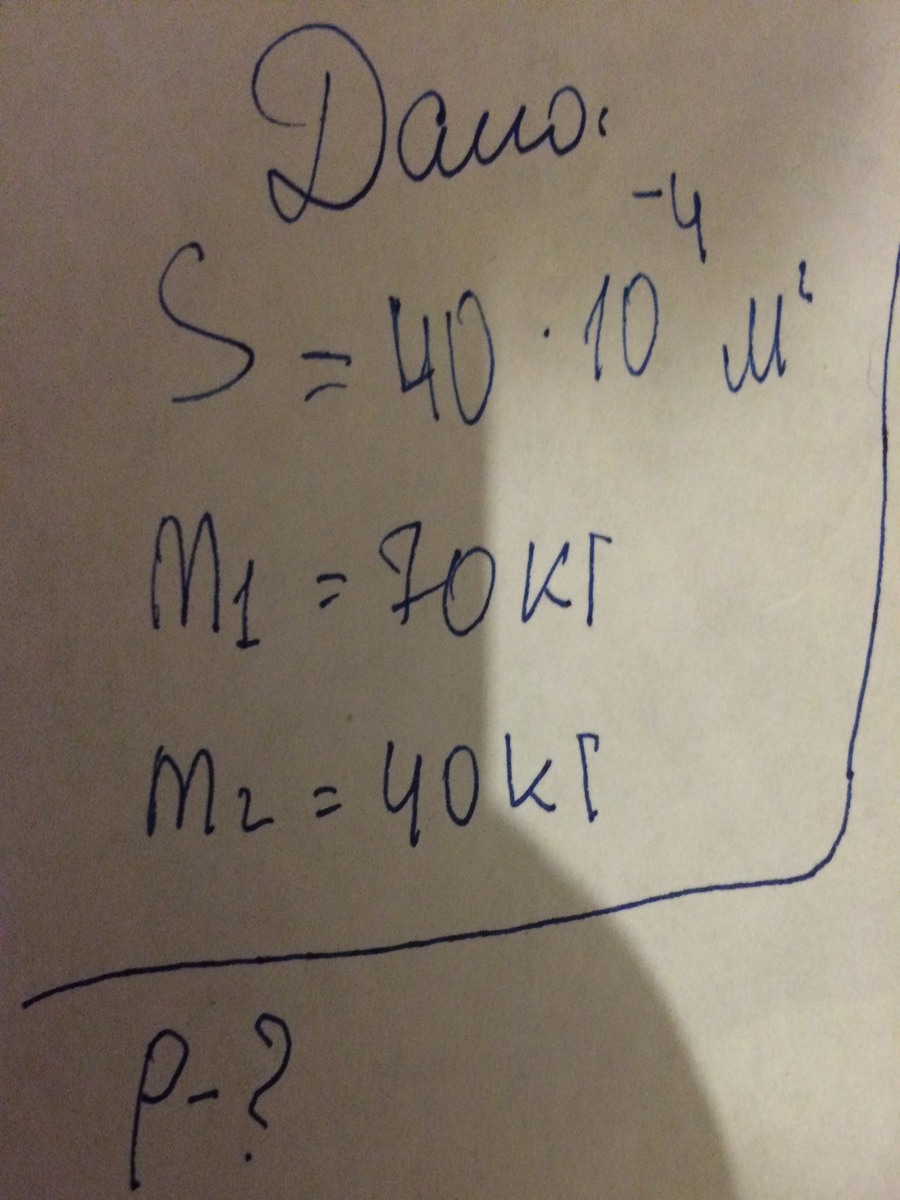 Дано:
S = 40 · 10⁻⁴ м²
m₁ = 70 кг
m₂ = 40 кг
p - ?